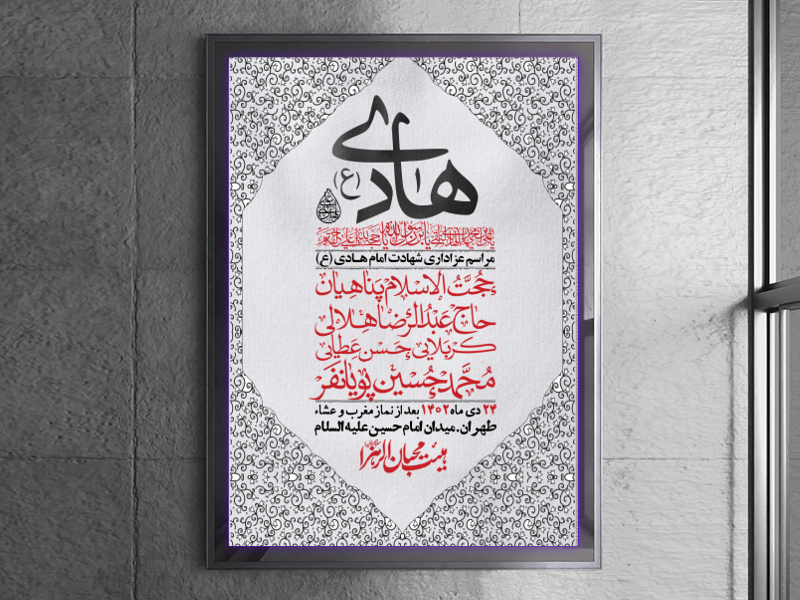 هادی (ع)
مراسم عزاداری شهادت امام هادی (ع)
حجت الاسلام پناهیان
حاج عبدالرضا هلالی
کربلایی حسن عطایی
محمدحسین پویانفر
۲۴ دی ماه ۱۴۰۲ بعد از نماز مغرب و عشاء
طهران.میدان امام حسین علیه السلام
هیئت محبان الزهرا